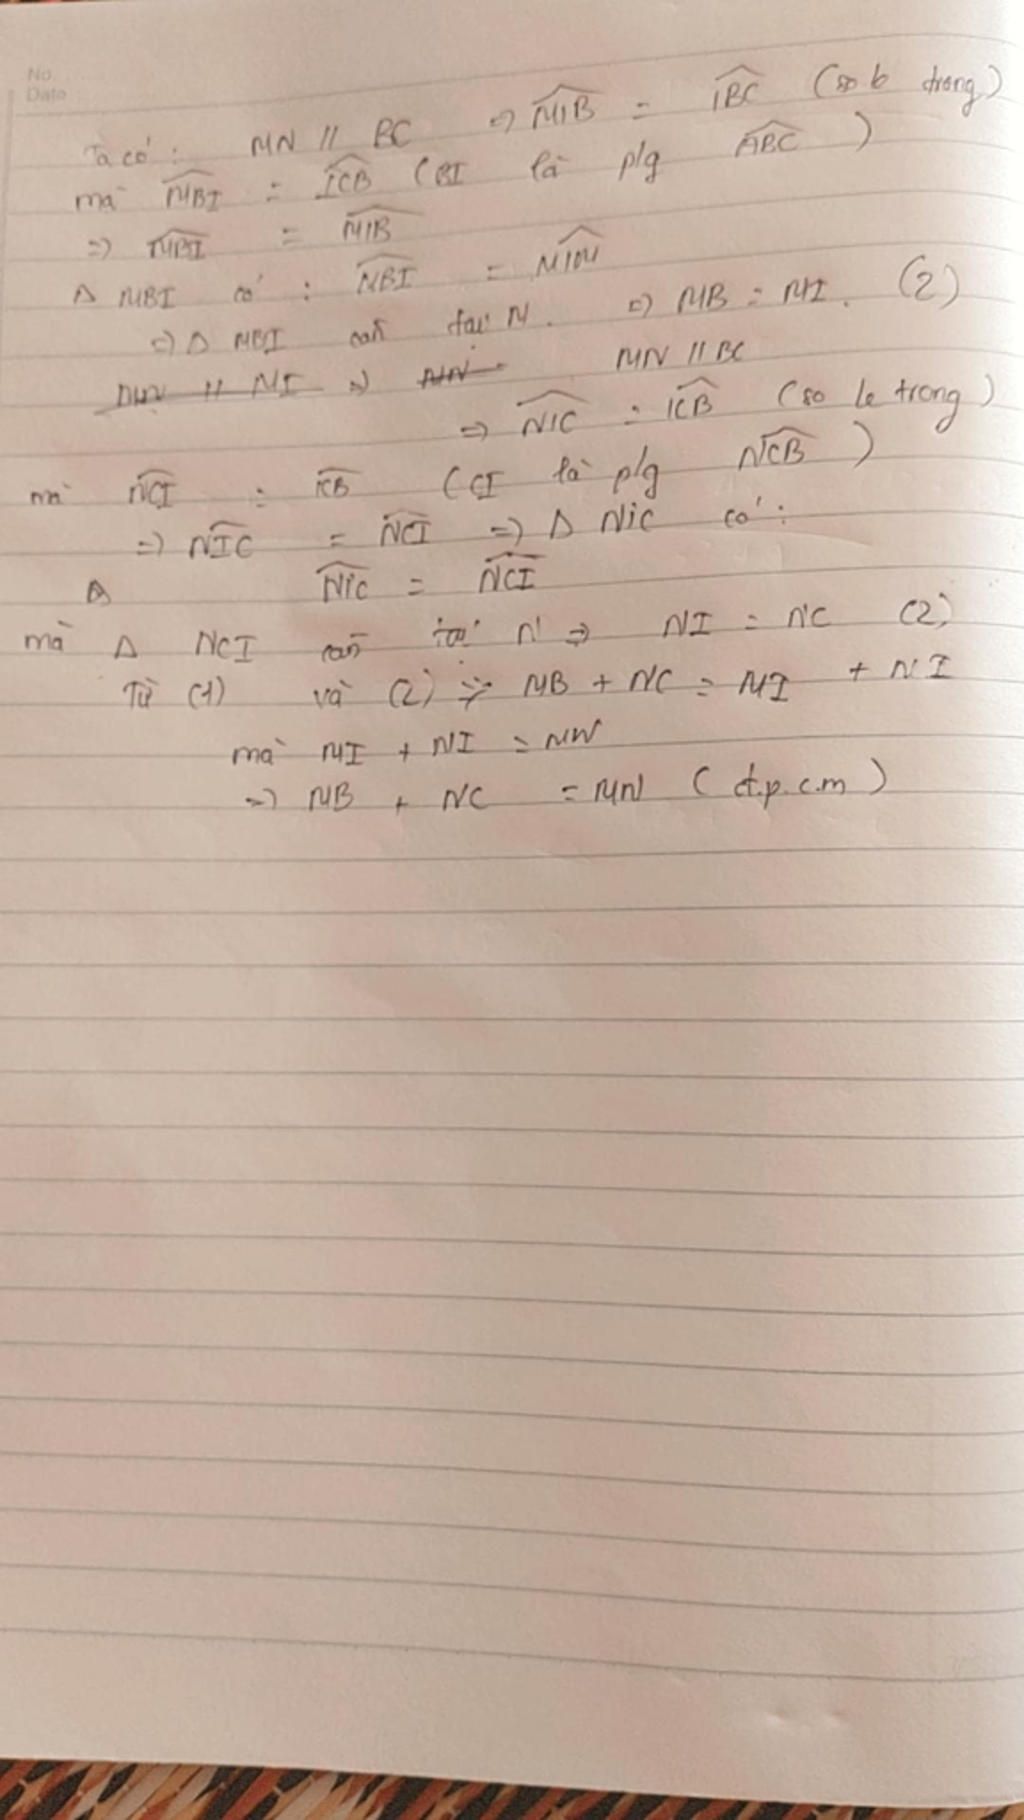 No.
Date
Ta có: MN // BC => MIB = IBC (so le trong)
mà MBI = ICB (BI là p/g ABC)
=> MBI = MIB
Δ MBI có: MBI =
=> Δ MBI cân tại M. => MB = MI. (2)
MN // BC
=> NIC = ICB (so le trong)
mà NCI = ICB (CI là p/g NCB)
=> NIC = NCI => Δ NIC có:
Δ NIC = NCI
mà Δ NCI cân tại N => NI = NC (2)
Từ (1) và (2) => MB + NC = MI + NI
mà MI + NI = MN
=> MB + NC = MN (đ.p.c.m)